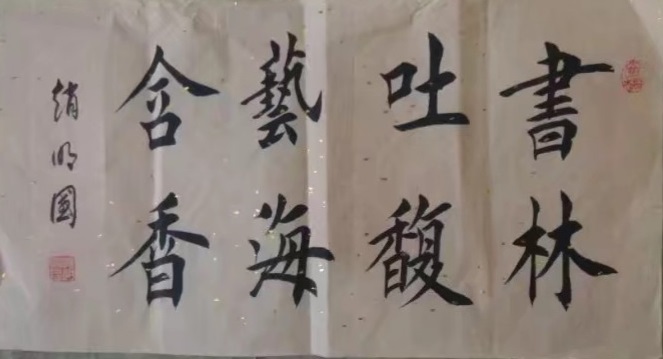 書林
吐馥
藝海
含香
明圖